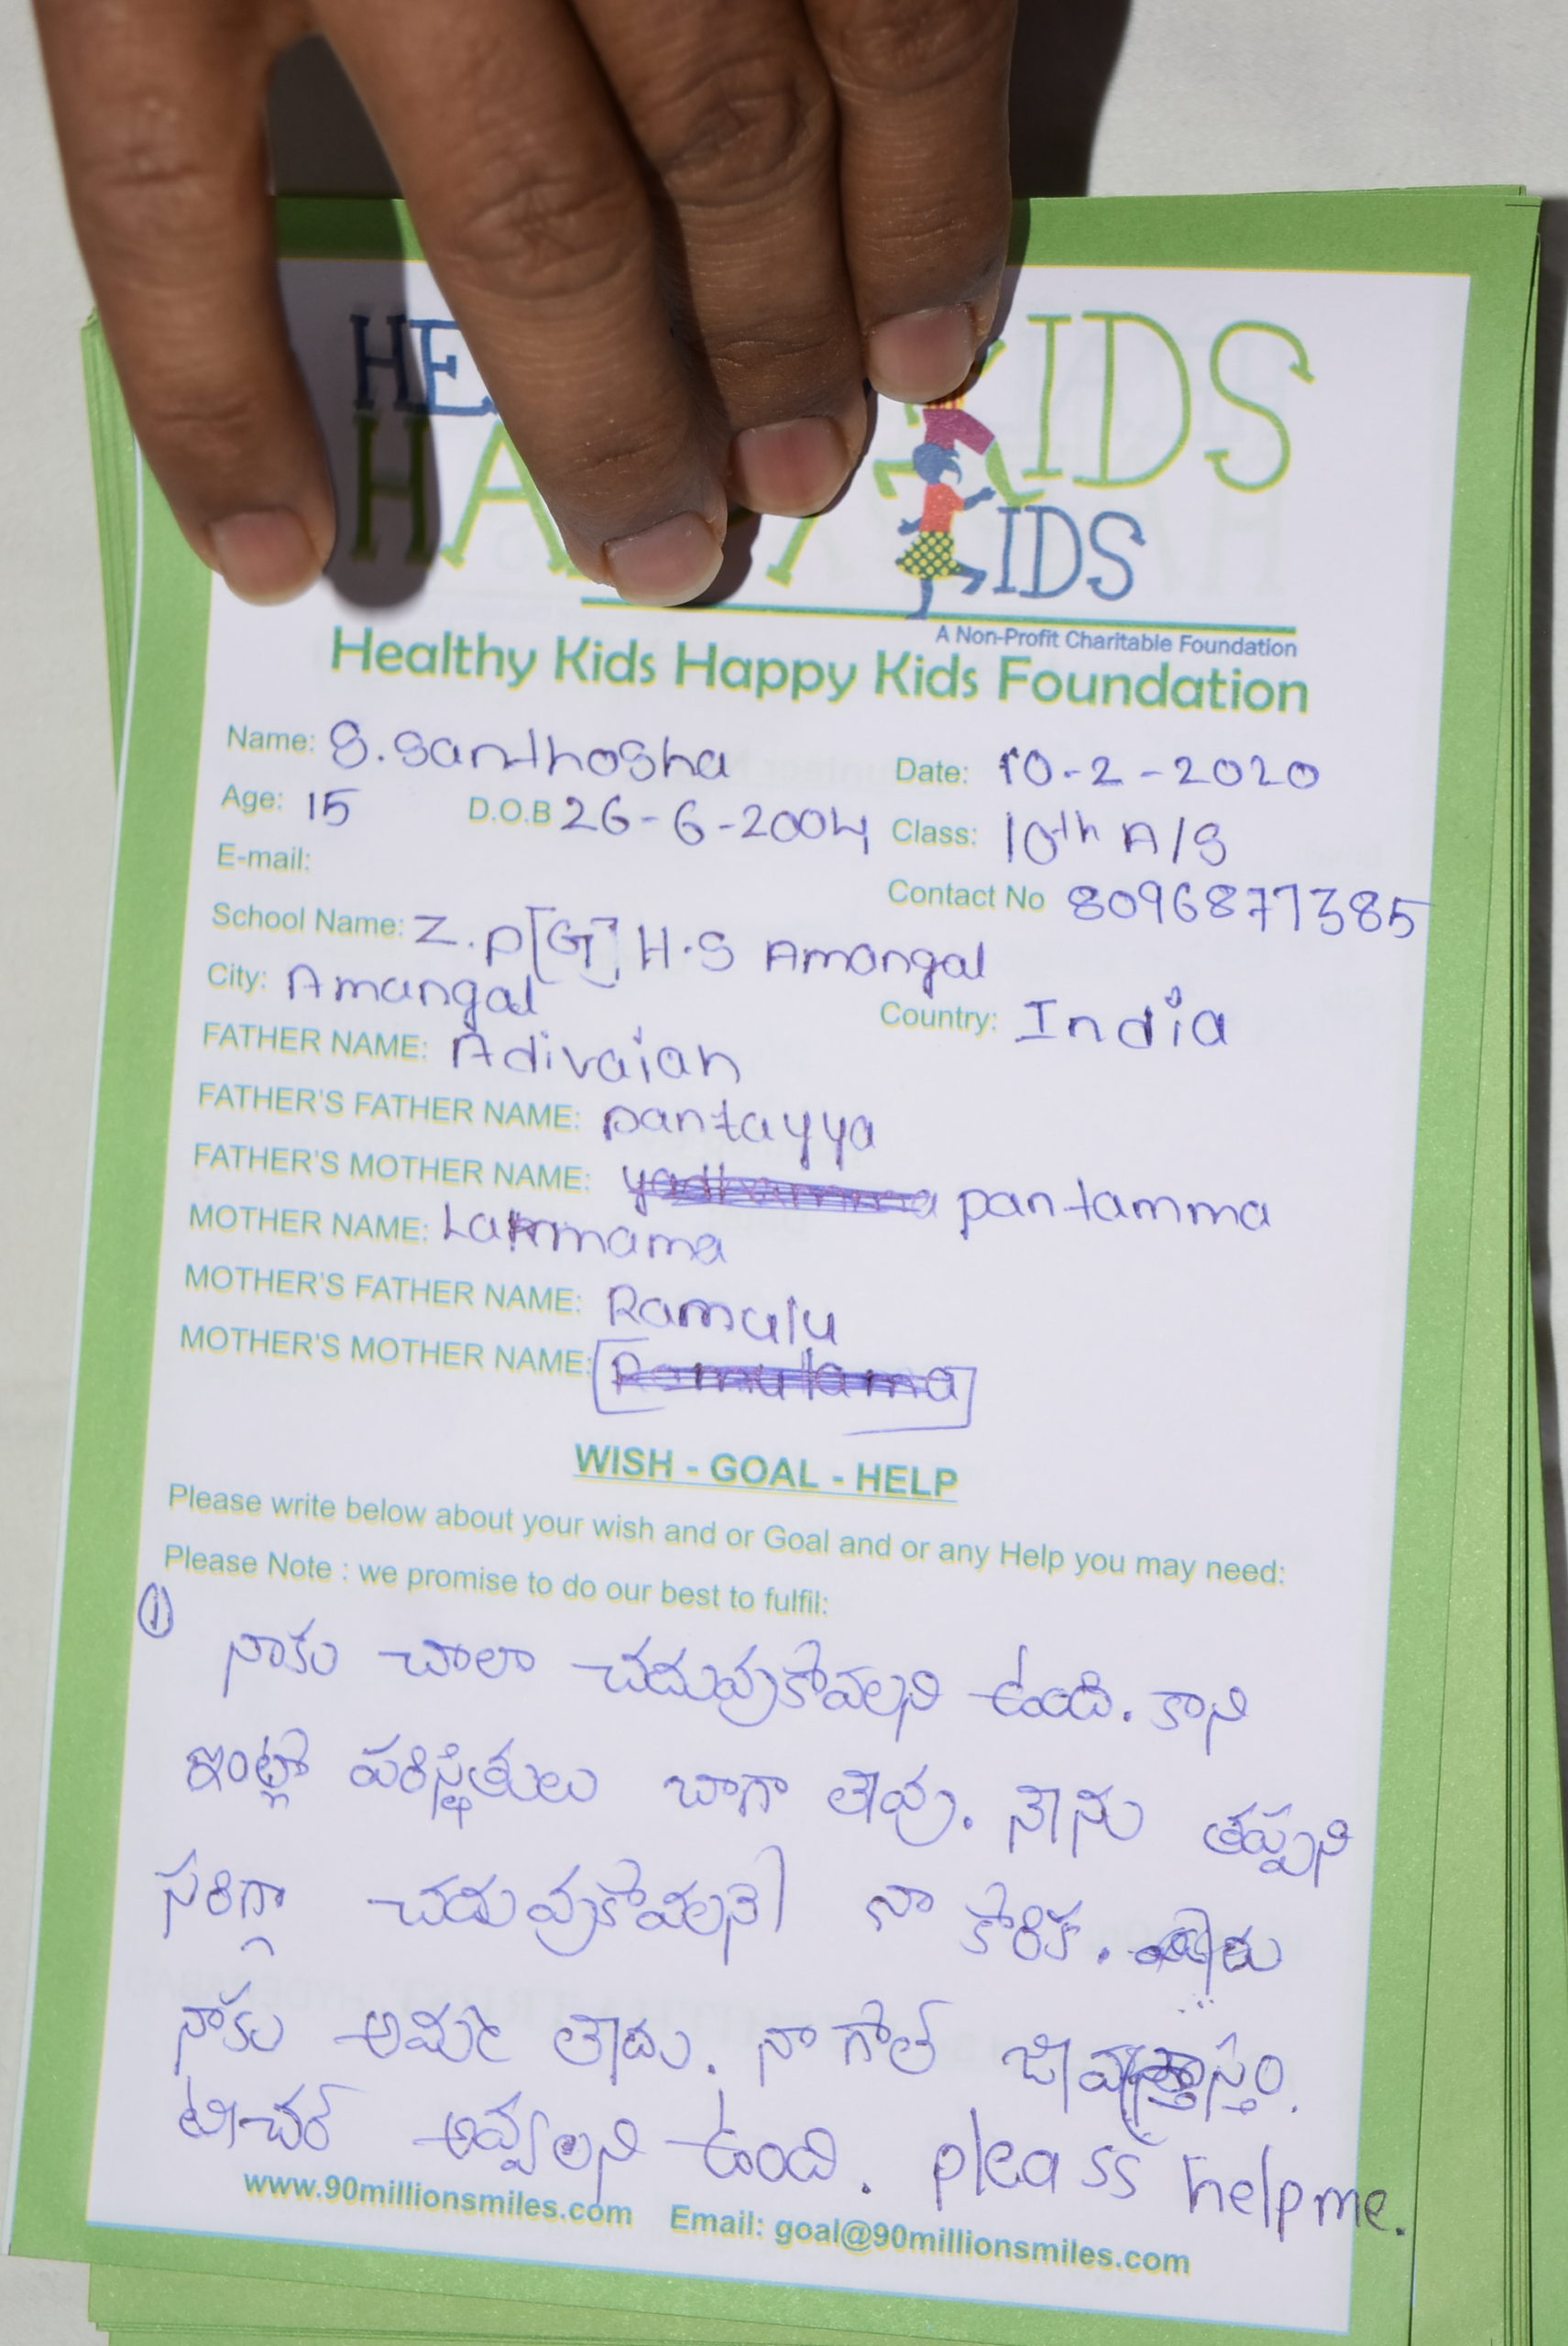 HE
KIDS
HA
KIDS
A Non-Profit Charitable Foundation
Healthy Kids Happy Kids Foundation
Name: S.Santhosha Date: 10-2-2020
Age: 15 D.O.B 26-6-2004 Class: 10th A/S
E-mail: Contact No 8096877385
School Name: Z.P[G] H.S Amangal
City: Amangal Country: India
FATHER NAME: Adivaiah
FATHER'S FATHER NAME: pantayya
FATHER'S MOTHER NAME: pantamma
MOTHER NAME:
MOTHER'S FATHER NAME: Ramulu
MOTHER'S MOTHER NAME: Ramulama
WISH - GOAL - HELP
Please write below about your wish and or Goal and or any Help you may need:
Please Note : we promise to do our best to fulfil:
① నాకు చాలా చదువుకోవలని ఉంది. కాని
ఇంట్లో పరిస్థితులు బాగా లేవు. నేను తప్పని
సరిగ్గా చదువుకోవలనే నా కోరిక.
నాకు లేదు. నా గోల్
టీచర్ అవ్వలని ఉంది. pleass helpme.
www.90millionsmiles.com Email: goal@90millionsmiles.com